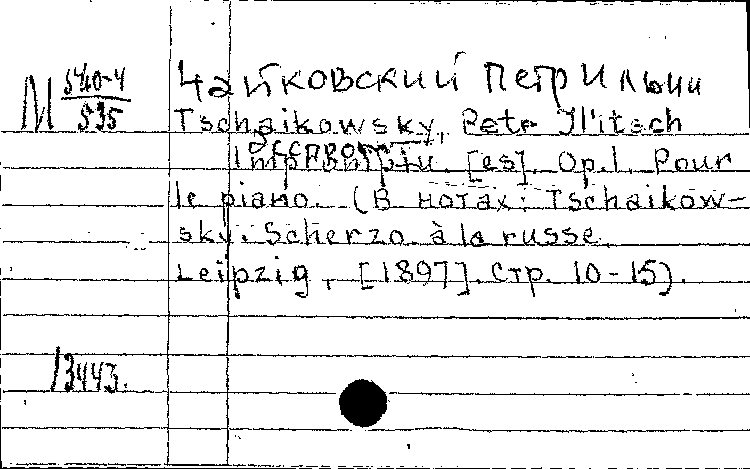 Чайковский Петр Ильич
М 540-4/535
Tschaikowsky, Petr Il'itsch
Impromptu [es]. Op.1. Pour
le piano. (В нотах: Tschaikow-
sky. Scherzo à la russe.
Leipzig, [1897]. Стр. 10-15).
13443.